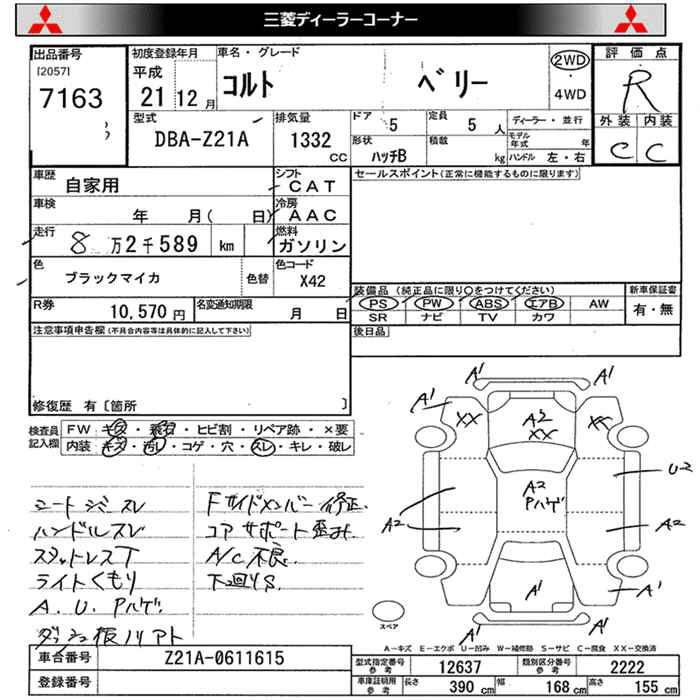 三菱ディーラーコーナー
出品番号
[2057]
7163
初度登録年月
平成
21 12月
車名・グレード
コルト ベリー
2WD
4WD
評価点
R
外装 内装
C C
型式
DBA-Z21A
排気量
1332 CC
ドア 5
定員 5 人
形状 ハッチB
積載 kg
ディーラー・並行
モデル年式 年
ハンドル 左・右
車歴
自家用
シフト
CAT
車検
年 月( 日)
冷房
AAC
走行
8 万 2 千 589 km
燃料
ガソリン
色
ブラックマイカ
色替
色コード
X42
R券
10,570円
名変通知期限
月 日
セールスポイント(正常に機能するものに限ります)
装備品(純正品に限り○をつけてください)
PS PW ABS エアB AW
SR ナビ TV カワ
新車保証書
有・無
後日品
注意事項申告欄(不具合内容等は具体的に記入して下さい)
修復歴 有〔箇所 〕
検査員記入欄
FW キズ・飛石・ヒビ割・リペア跡・×要
内装 キズ・汚レ・コゲ・穴・スレ・キレ・破レ
シートシミスレ
ハンドルスレ
スタットレスT
ライトくもり
A.U.Pハゲ
ダッシュ板ノリアト
Fサイドメンバー修正
コアサポート歪み
A/C不良
下廻りS
A1 A1
A1 A1
XX A2 XX XX
U2
A2 Pハゲ
A2 A2
A1 A1
A1 A1
スペア
A-キズ E-エクボ U-凹み W-補修跡 S-サビ C-腐食 XX-交換済
車台番号
Z21A-0611615
登録番号
型式指定番号 参考
12637
類別区分番号 参考
2222
車庫証明用 参考
長さ 390 cm
幅 168 cm
高さ 155 cm